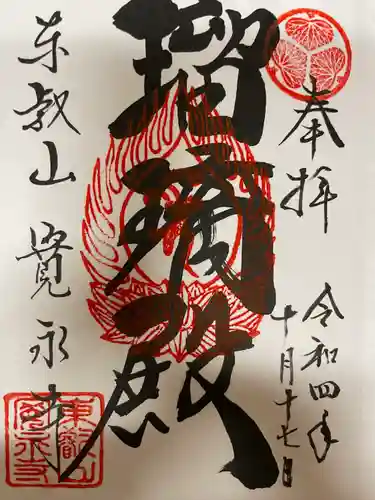 奉拝
令和四年
十月十七日
瑠璃殿
東叡山 寛永寺
東叡山
寛永寺